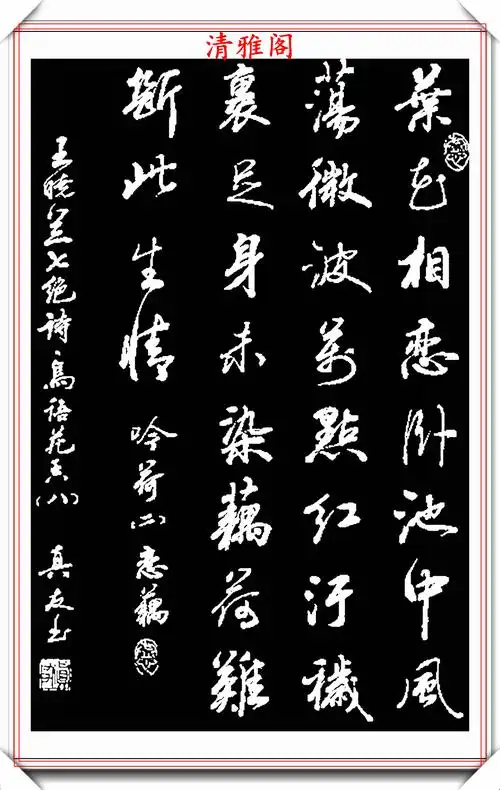 清雅阁
葉花相戀卧池中風
蕩微波萬點紅汙穢
裏足身未染藕荷難
斷此生情 吟荷(二)戀藕
王曉兰七绝詩·鳥語花香(八) 真友书